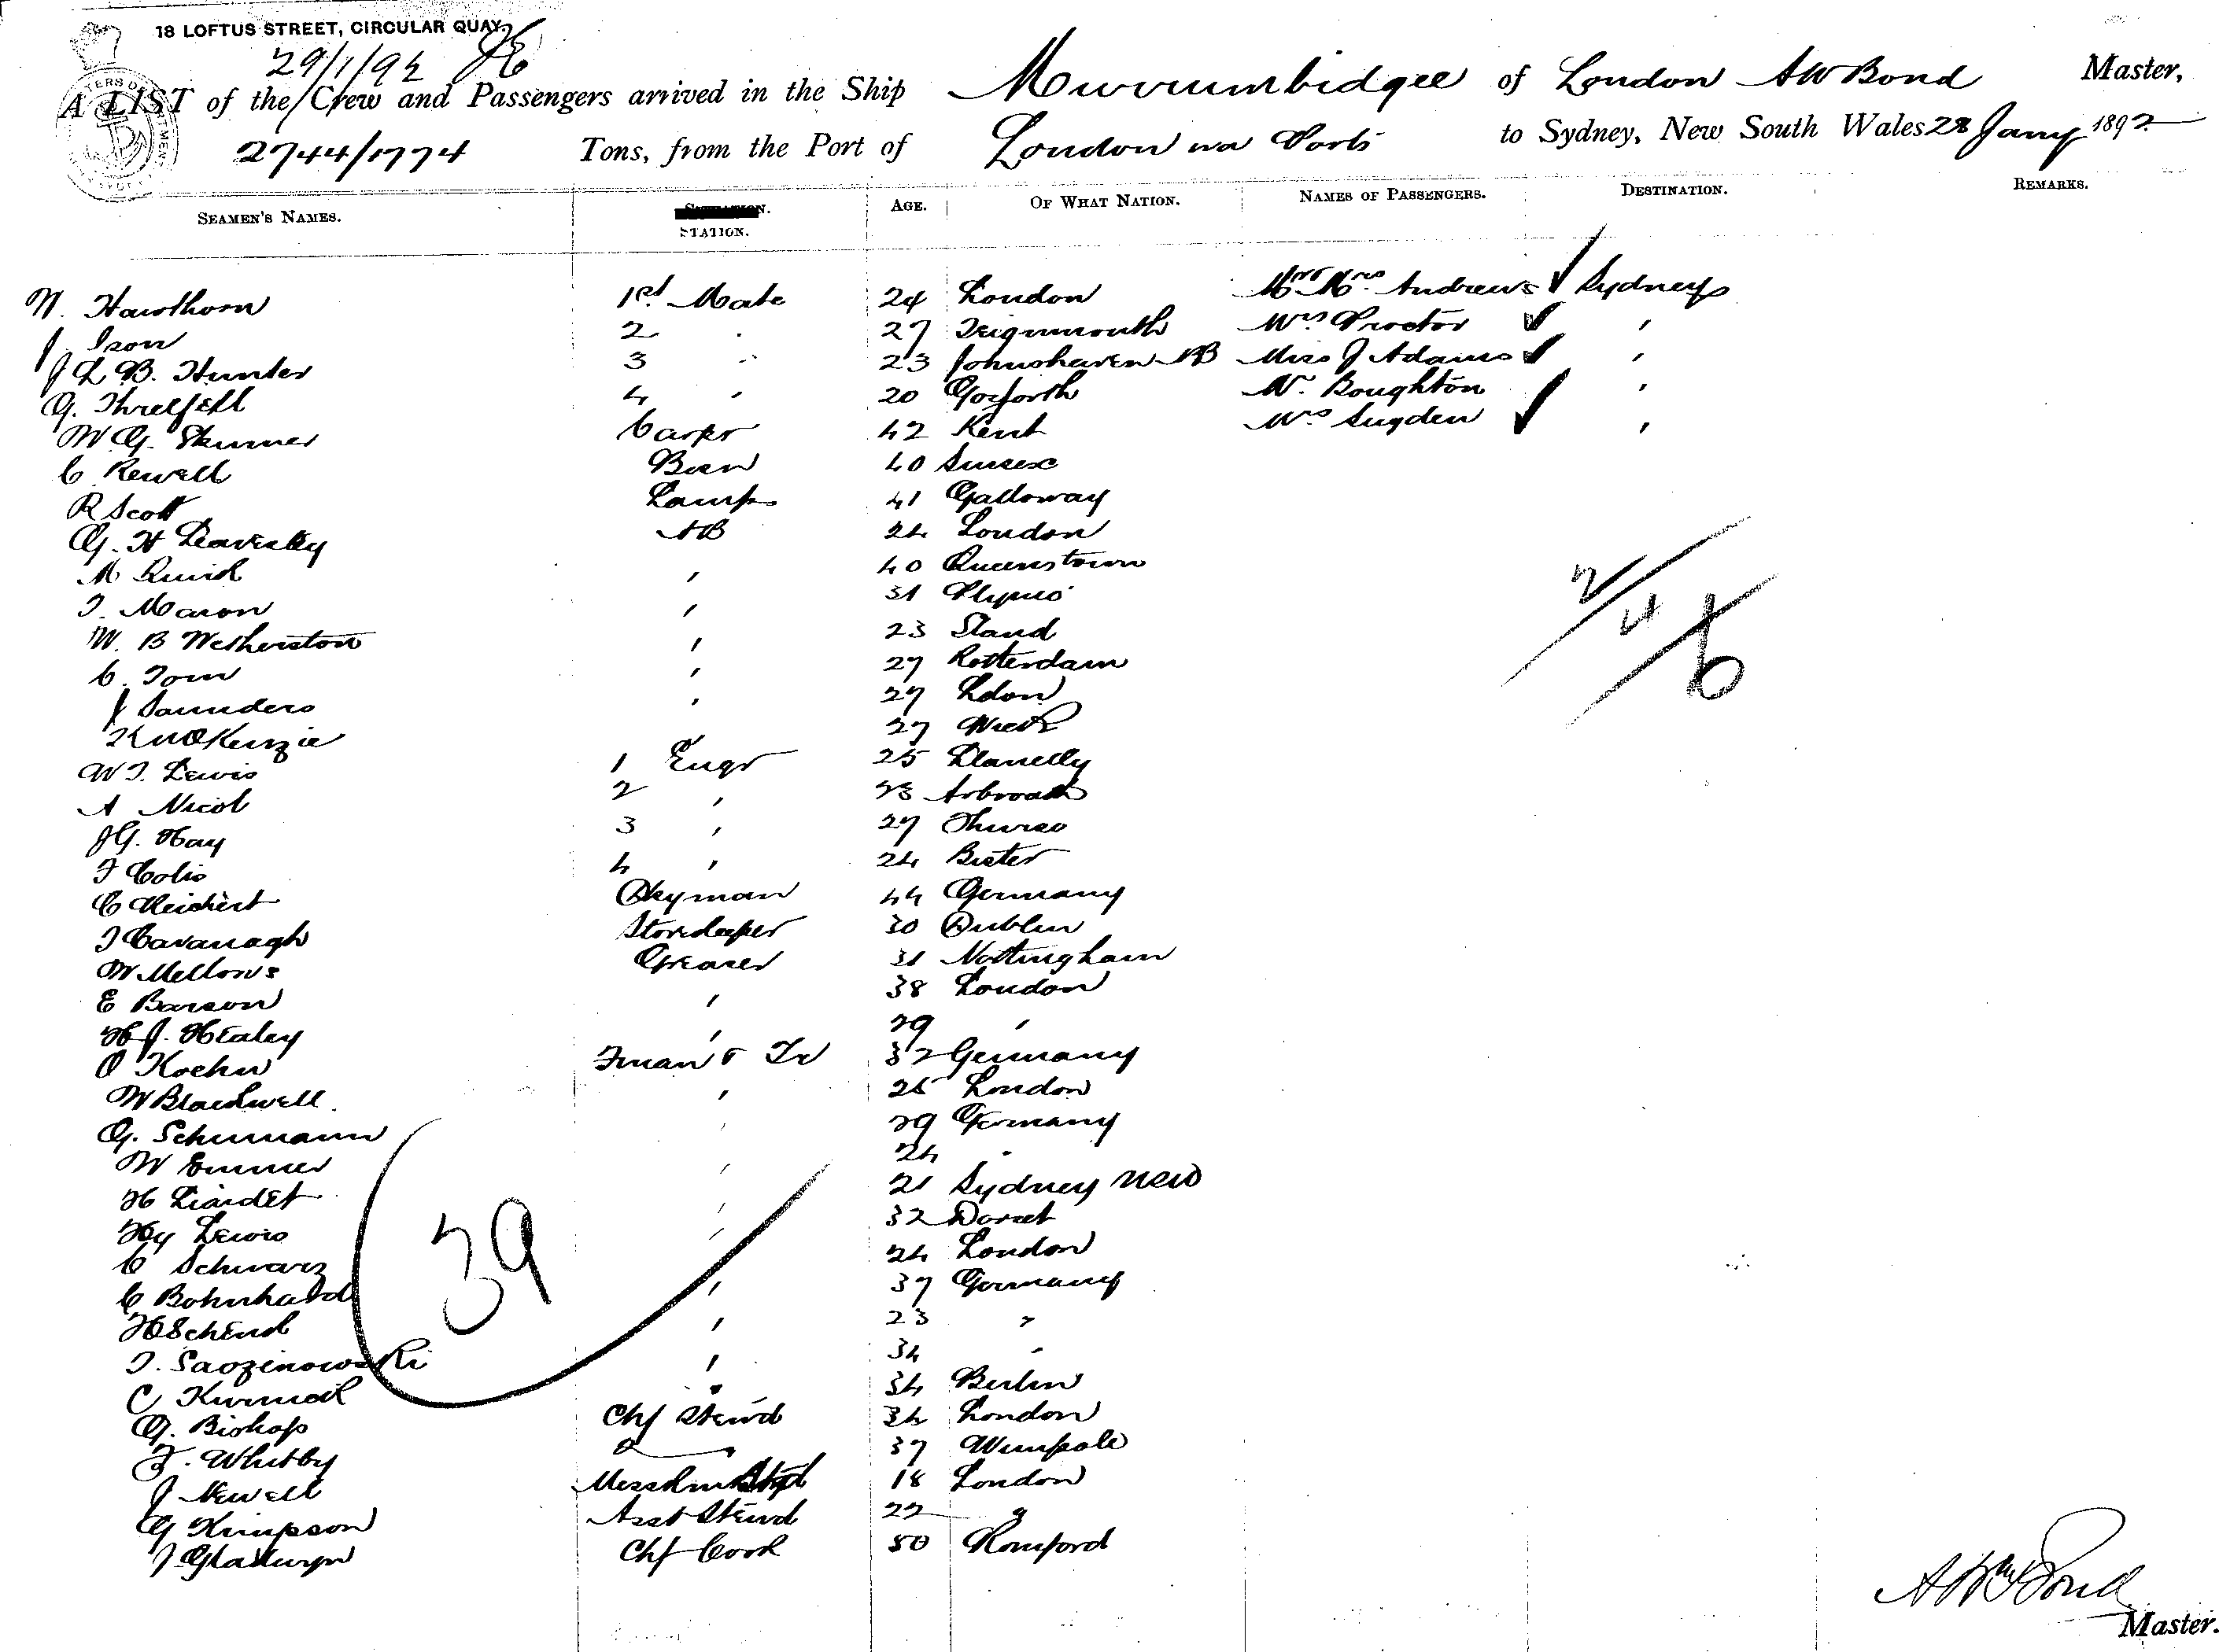 18 LOFTUS STREET, CIRCULAR QUAY.
29/1/92
A LIST of the Crew and Passengers arrived in the Ship Murrumbidgee of London AW Bond Master,
2744/1774 Tons, from the Port of London via Ports to Sydney, New South Wales 28 Jany 1892
SEAMEN'S NAMES. STATION. AGE. OF WHAT NATION. NAMES OF PASSENGERS. DESTINATION. REMARKS.
W. Hawthorn 1st Mate 24 London Mr Mrs Andrews Sydney
J. Ison 2 " 27 Teignmouth Mrs Proctor "
J L B. Hunter 3 " 23 Johnshaven NB Miss J Adams "
G. Threlfell 4 " 20 Gosforth Boughton "
W G. Skinner Carpr 42 Kent Mrs Sugden "
C Rewell Bosn 40 Sussex
R Scott Lamps 41 Galloway
G. H Leaversley AB 24 London
M Quirk " 40 Queenstown
T. Mason " 31
W. B Wetherston " 23
C. Torn " 27 Rotterdam
J Saunders " 27 Ldon
McKenzie 27 Wick
W T. Lewis 1 Engr 25 Llanelly
A Nicol 2 " 23 Arbroath
J G. Hay 3 " 27 Thurso
F Colis 4 " 24
C Reichert Dkyman 44 Germany
J Cavanagh Storekeeper 30 Dublin
W Mellows Greaser 31 Nottingham
E Barson " 38 London
H J. Healey " 29 "
O Koehn Fman & Tr 32 Germany
W Blackwell " 25 London
G. Schumann " 29 Germany
W Emmer " 24 "
H Liardet " 21 Sydney NSW
Hy Lewis " 32 Dorset
C Schwarz 24 London
C Bohnhard " 37 Germany
H Schenk " 23 "
T. " 34 "
C " 34 Berlin
G. Bishop Chf Stewd 34 London
F. Whitby 2 " 37 Wimpole
J Newell 18 London
G Kimpson Asst Stewd 22 "
J Gladwyn Chf Cook 50 Romford
2/4/6
39
A Wm Bond
Master.